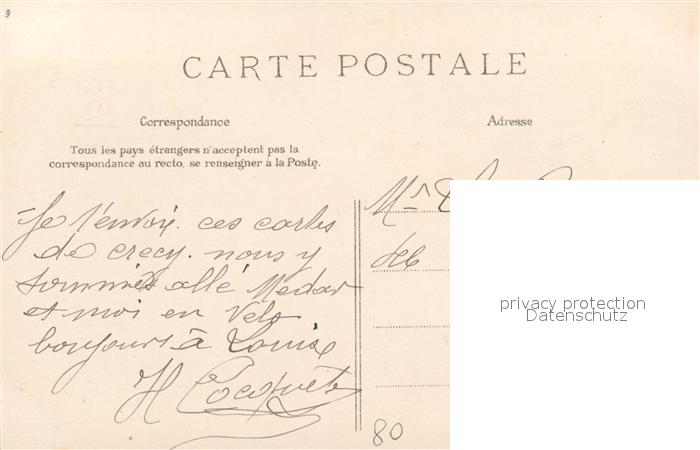 9
CARTE POSTALE
Correspondance
Adresse
Tous les pays étrangers n'acceptent pas la
correspondance au recto, se renseigner à la Poste.
Je t'envoie ces cartes
de crecy. nous y
sommes allé Medar
et moi en Velo
bonjours à Louise
H
80
privacy protection
Datenschutz